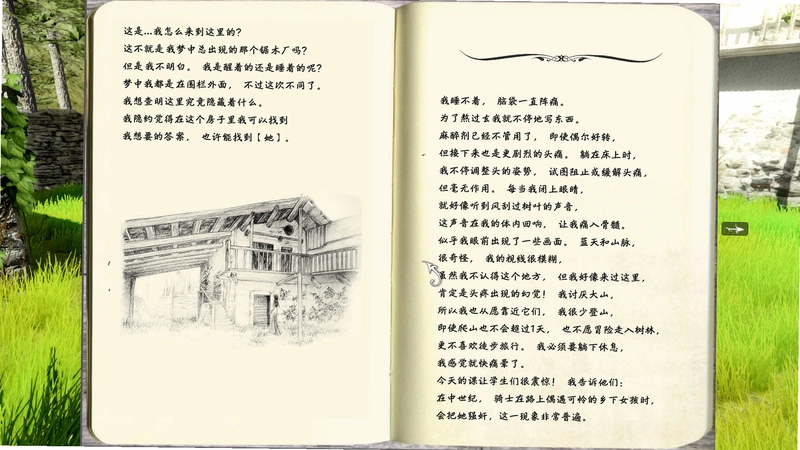 这是...我怎么来到这里的?
这不就是我梦中总出现的那个锯木厂吗?
但是我不明白。 我是醒着的还是睡着的呢?
梦中我都是在围栏外面, 不过这次不同了。
我想查明这里究竟隐藏着什么。
我隐约觉得在这个房子里我可以找到
我想要的答案, 也许能找到【她】。
我睡不着, 脑袋一直阵痛。
为了熬过去我就不停地写东西。
麻醉剂已经不管用了, 即使偶尔好转,
但接下来也是更剧烈的头痛。 躺在床上时,
我不停调整头的姿势, 试图阻止或缓解头痛,
但毫无作用。 每当我闭上眼睛,
就好像听到风刮过树叶的声音,
这声音在我的体内回响, 让我痛入骨髓。
似乎我眼前出现了一些画面。 蓝天和山脉,
很奇怪, 我的视线很模糊,
虽然我不认得这个地方, 但我好像来过这里,
肯定是头疼出现的幻觉! 我讨厌大山,
所以我也从不愿靠近它们, 我很少登山,
即使爬山也不会超过1天, 也不愿冒险走入树林,
更不喜欢徒步旅行。 我必须要躺下休息,
我感觉就快痛晕了。
今天的课让学生们很震惊! 我告诉他们:
在中世纪, 骑士在路上偶遇可怜的乡下女孩时,
会把她强奸, 这一现象非常普遍。